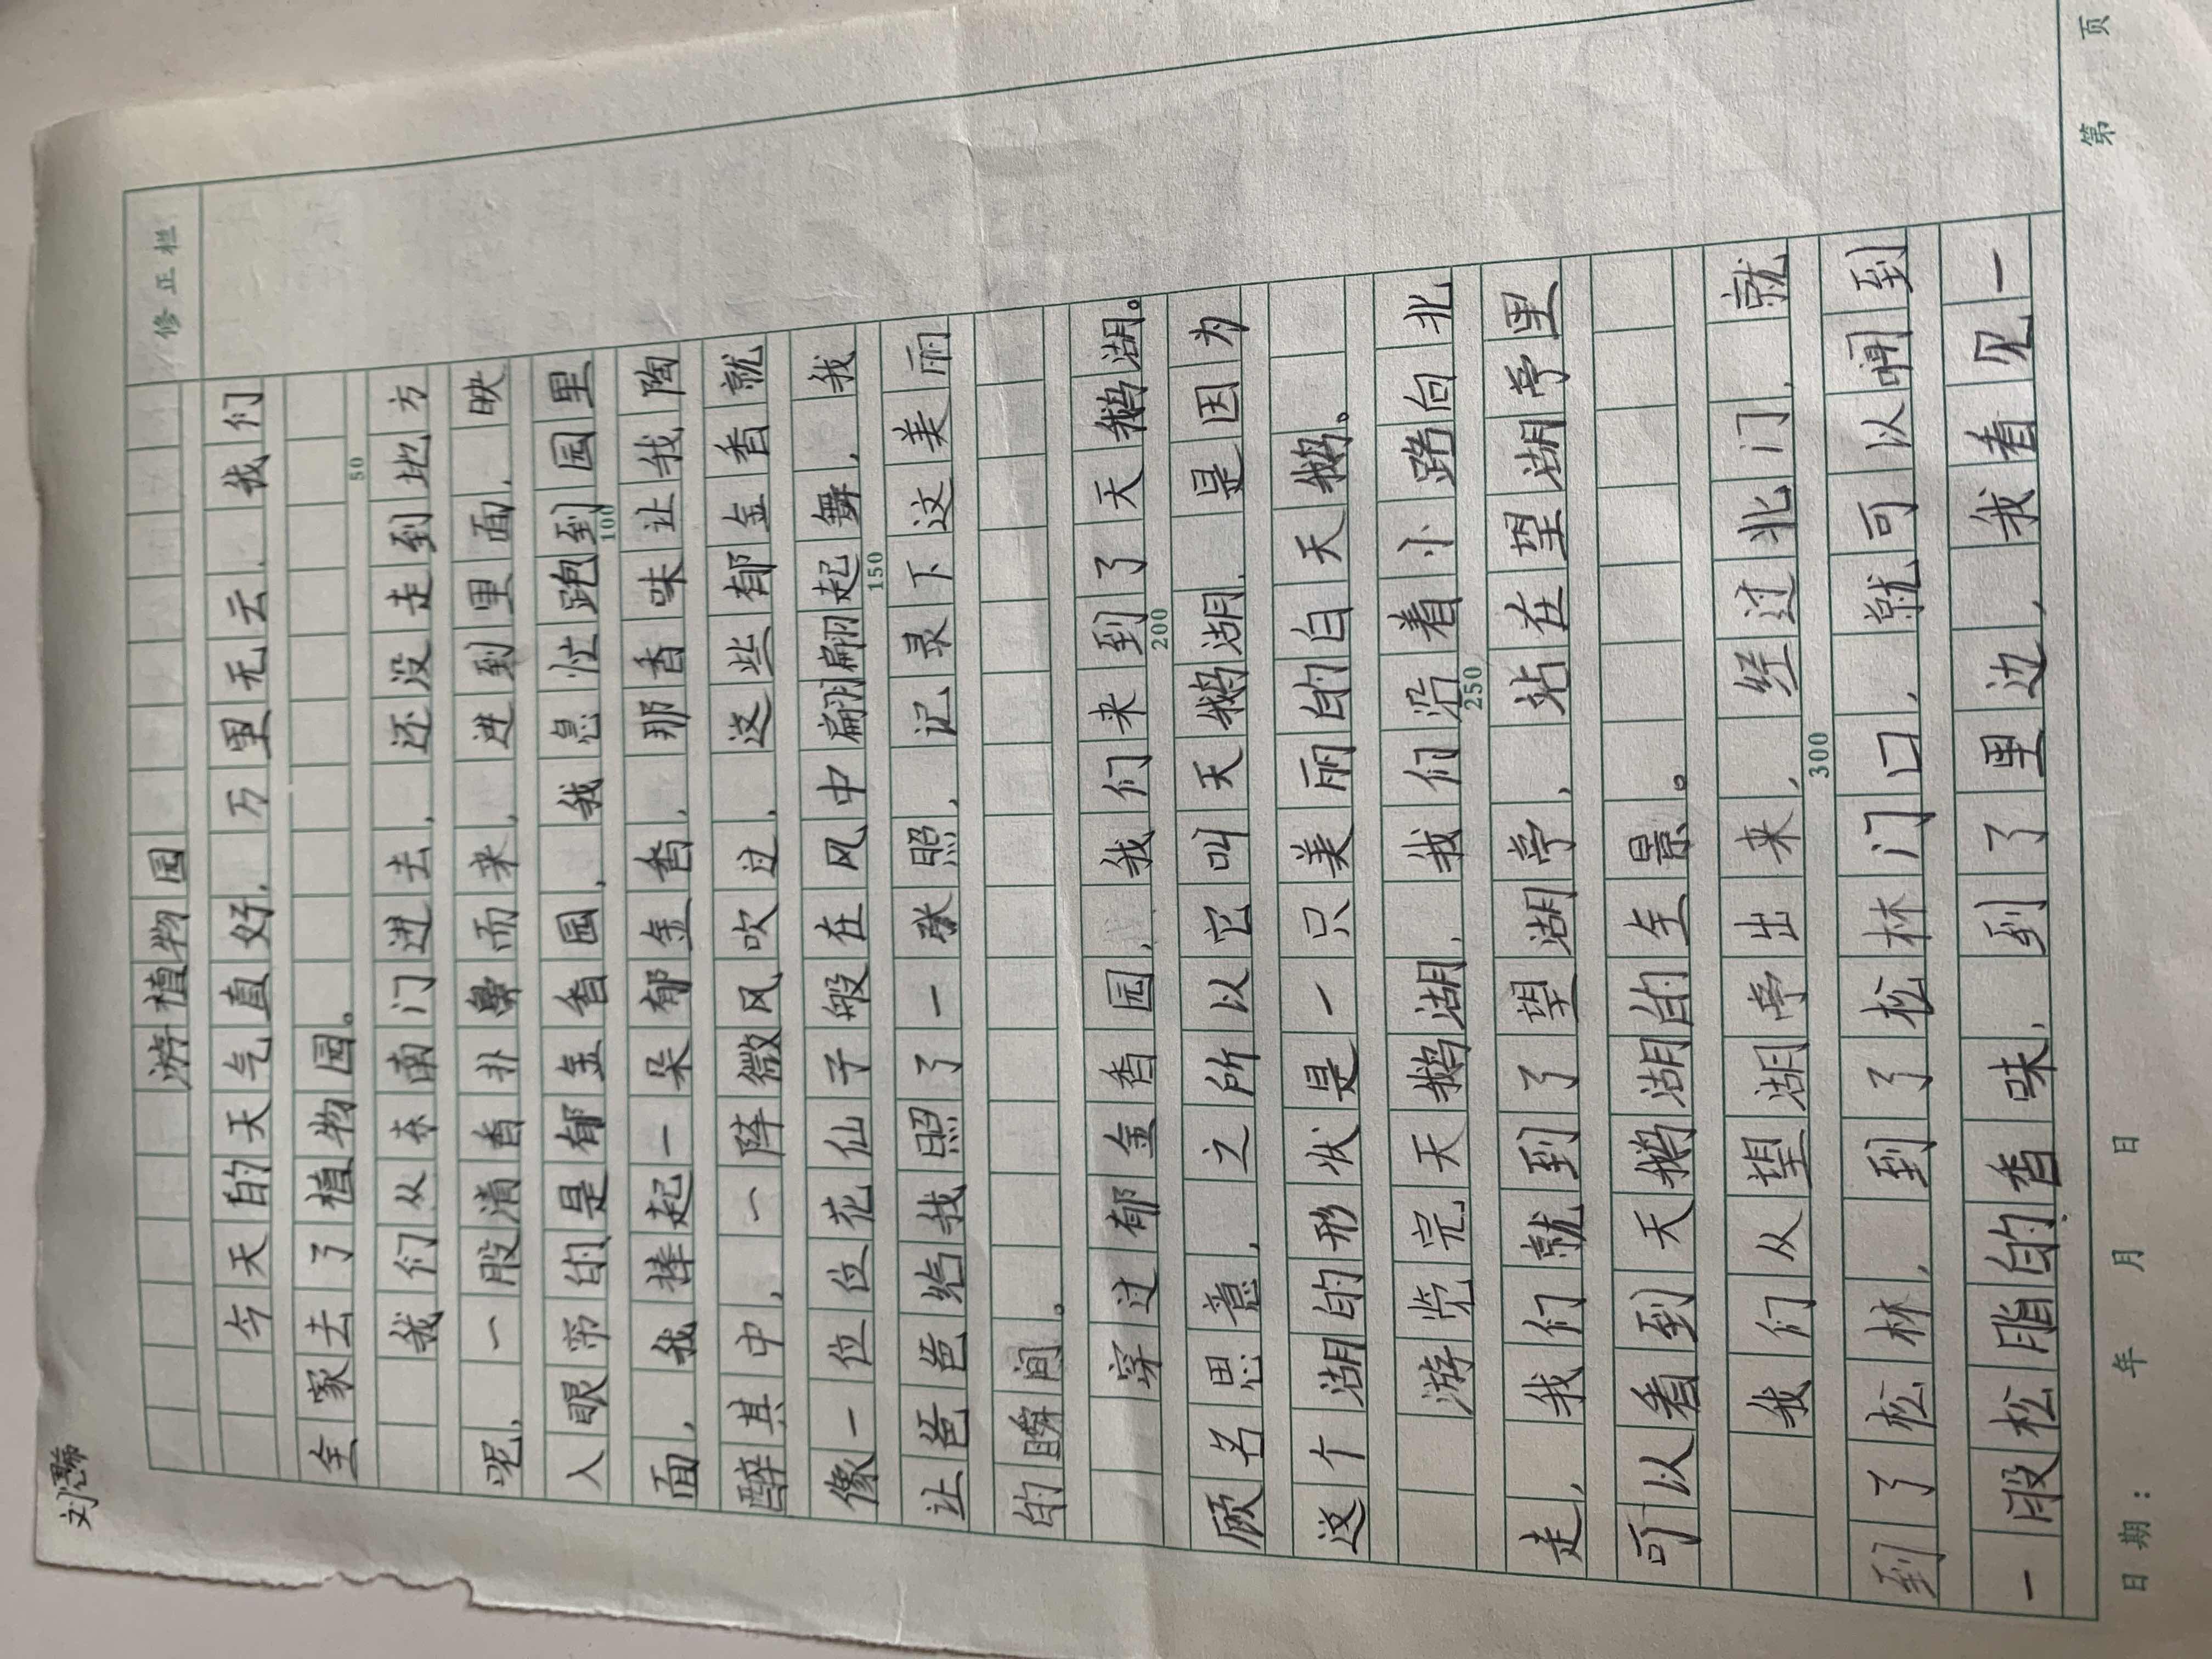 刘思
修正栏
游植物园
今天的天气真好，万里无云，我们
全家去了植物园。
50
我们从东南门进去，还没走到地方
呢，一股清香扑鼻而来，进到里面，映
入眼帘的是郁金香园，我急忙跑到园里
100
面，我捧起一朵郁金香，那香味让我陶
醉其中，一阵微风吹过，这些郁金香就
像一位位花仙子般在风中翩翩起舞，我
150
让爸爸给我照了一张照，记录下这美丽
的瞬间。
穿过郁金香园，我们来到了天鹅湖。
200
顾名思意，之所以它叫天鹅湖，是因为
这个湖的形状是一只美丽的白天鹅。
游览完天鹅湖，我们沿着小路向北
250
走，我们就到了望湖亭，站在望湖亭里
可以看到天鹅湖的全景。
我们从望湖亭出来，经过北门，就
300
到了松林，到了松林门口，就可以闻到
一股松脂的香味，到了里边，我看见一
日期： 年 月 日 第 页